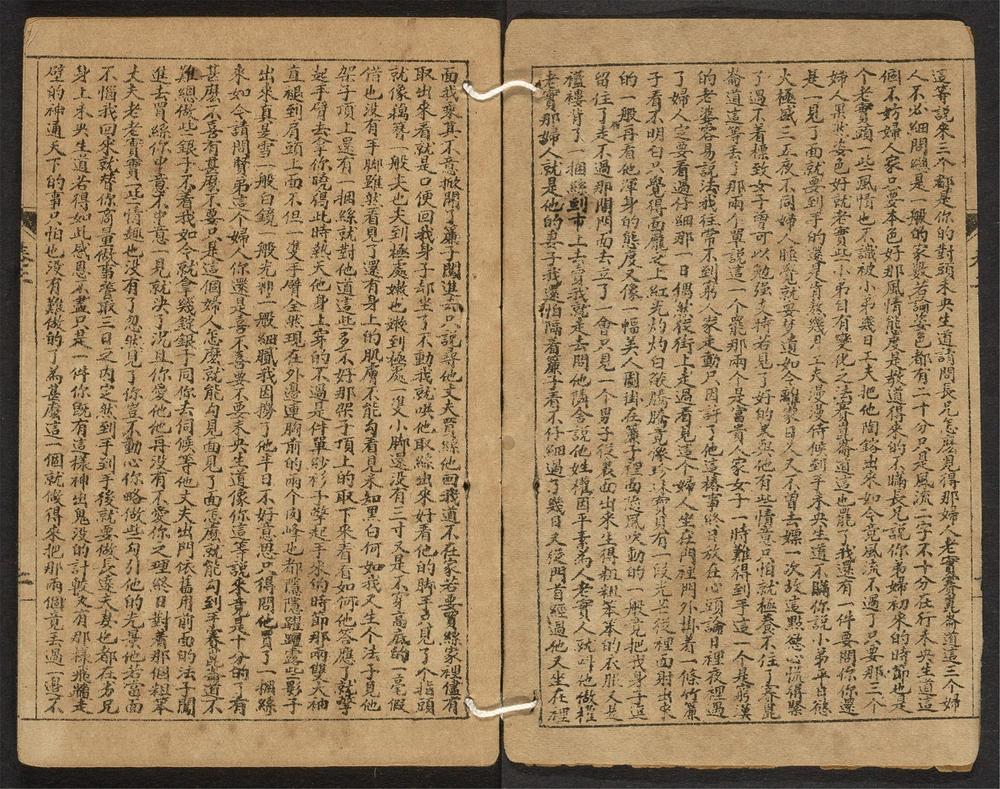 這等說來三个都是你的對頭未央生道請問長兄怎麽見得那婦人老實賽崑崙道這三个婦
人不必細問緫是一般的家数若論姿色都有二十分只是風流二字不十分在行未央生道這
個不妨婦人家只要本色好那風情態度是教道得來的不瞞長兄說你弟婦初來的時節也是
个老實頭一些風情也不識被小弟幾日工夫把他陶鎔出來如今竟風流不過了只要那三个
婦人果然姿色好就老實些小弟自有變化之法賽崑崙道這也罷了我還有一件要問你你還
是一見了面就要到手的還是肯熬幾日工夫漫漫侍候到手未央生道不瞞你說小弟平日慾
火極盛三五夜不同婦人睡覺就要夢遺如今離家日久又不曾去嫖一次故這點慾心慌得緊
了遇不着標致女子曽可以勉強支持若見了好的又與他有些情意只怕就極養不住了賽崑
崙道這等丢了那兩个單說這一个罷那兩个是富貴人家女子一時難得到手這一个是窮漢
的老婆容易說法我往常不到窮人家走動只因許了你這樁事終日放在心頭論日裡夜裡遇
了婦人定要看過仔細那一日偶然從街上走過看見這个婦人坐在門裡門外掛着一條竹簾
子看不明白只覺得面龐之上紅光灼灼白欲騰騰竟像珍珠寶貝有一段光芒從裡面射出來
的一般再看他渾身的態度又像一幅美人圖掛在簾子裡面恁風吹動的一般竟把我身子這
留住了走不過那門面去立了一會只見一个男子從裏面出來生得粗粗笨笨的衣服又是
襤褸背了一捆絲到市上去賣我就走去問他隣舍說他姓權因平素為人老實人就叫他做權
老實那婦人就是他的妻子我還怕隔着簾子看不仔細過了幾日又從門首經過他又坐在裡
面我乘其不意掀開了簾子闖進去只說尋他丈夫買絲他回我道不在家若要買絲家裡儘有
取出來看就是口便回我身子却坐了不動我就哄他取絲出來好看他的脚手只見了个指頭
就像藕簪一般尖也尖到極處嫩也嫩到極處一雙小脚還沒有三寸又是不穿高底的一毫假
借也没有手脚雖然看見了還有身上的肌膚不能勾看見未知黑白何如我又生个法子見他
架子頂上還有一捆絲就對他道這些多不好那架子頂上的取下來看看如何他答應了就擎
起手臂去拿你曉得此時熱天他身上穿的不過是件單紗衫子擎起手來倘時節那兩隻大袖
直褪到肩頭上面不但一隻手臂全然現在外邊連胸前的兩个肉峰也都隱隱躍躍露些影子
出來真是雪一般白鏡一般光粉一般細膩我因擾了他半日不好意思只得問他買了一捆絲
來如今請問賢弟這个婦人你還是喜不喜要不要未央生道像你這等說來竟是十分的了有
甚麽不喜有甚麽不要只是這個婦人怎麽就能勾見面見了面怎麽就能勾到手賽崑崙道不
難總做些銀子不着我如今就拿幾錠銀子同你去伺候等他丈夫出門依舊用前面的法子闖
進去買絲你中意不中意一見就决了况且你愛他他再没有不愛你之理終日對着那個粗笨
丈夫老老實實一些情趣也没有了忽然見了你豈不動心你略做些勾引他的光景他若當面
不惱我回來就替你商量做事管取三日之內定然到手到手後就要做長遠夫妻也都在劣兄
身上未央生道若得如此感恩不盡只是一件你既有這樣神出鬼没的計較又有那樣飛牆走
壁的神通天下的事只怕也没有難做的了為甚麽這一個就做得來把那兩個竟丢過一邊不